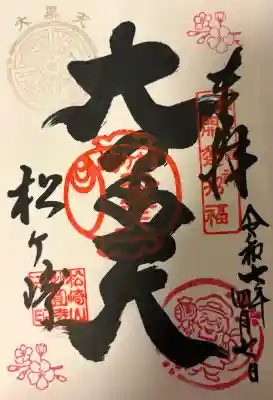 奉拝
開運招福
令和七年四月七日
大黒天
大黒天
松ヶ崎
松崎山
妙圓寺印